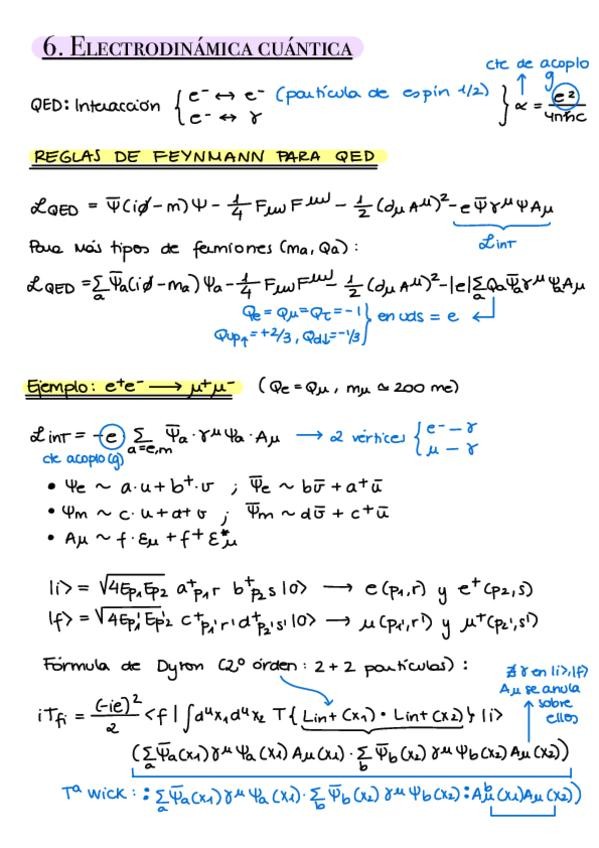 6. Electrodinámica cuántica
cte de acoplo
g
QED: Interacción { e⁻ ↔ e⁻ (partícula de espín 1/2) } α = e²/4πħc
e⁻ ↔ γ
REGLAS DE FEYNMANN PARA QED
ℒQED = Ψ̄(i∂̸-m)Ψ - 1/4 Fμν F^μν - 1/2 (∂μ A^μ)² - e Ψ̄ γ^μ Ψ Aμ
Lint
Para más tipos de fermiones (ma, Qa):
ℒQED = Σa Ψ̄a(i∂̸-ma)Ψa - 1/4 Fμν F^μν - 1/2 (∂μ A^μ)² - |e| Σa Qa Ψ̄a γ^μ Ψa Aμ
Qe = Qμ = Qτ = -1 } en uds = e
Qup↑ = +2/3, Qd↓ = -1/3
Ejemplo: e⁺e⁻ ⟶ μ⁺μ⁻ (Qe = Qμ, mμ ≃ 200 me)
ℒINT = -e Σa=e,m Ψ̄a·γ^μ Ψa·Aμ ⟶ 2 vértices { e⁻ — γ
μ — γ
cte acoplo(g)
• Ψe ~ a·u + b⁺·v ; Ψ̄e ~ bv̄ + a⁺ū
• Ψm ~ c·u + d⁺v ; Ψ̄m ~ dv̄ + c⁺ū
• Aμ ~ f·Ɛμ + f⁺Ɛ*μ
|i> = √4Ep₁Ep₂ a⁺p₁r b⁺p₂s |0> ⟶ e(p₁,r) y e⁺(p₂,s)
|f> = √4Ep₁'Ep₂' c⁺p₁'r' d⁺p₂'s' |0> ⟶ μ(p₁',r') y μ⁺(p₂',s')
Fórmula de Dyson (2º órden: 2+2 partículas):
∄ γ en |i>,|f>
Aμ se anula
sobre
ellos
iTfi = (-ie)²/2 <f| ∫d⁴x₁d⁴x₂ T{Lint(x₁)·Lint(x₂)} |i>
(Σa Ψ̄a(x₁)γ^μ Ψa(x₁)Aμ(x₁)·Σb Ψ̄b(x₂)γ^μ Ψb(x₂)Aμ(x₂))
Tª Wick: :Σa Ψ̄a(x₁)γ^μ Ψa(x₁)·Σb Ψ̄b(x₂)γ^μ Ψb(x₂): Aμ(x₁)Aμ(x₂))